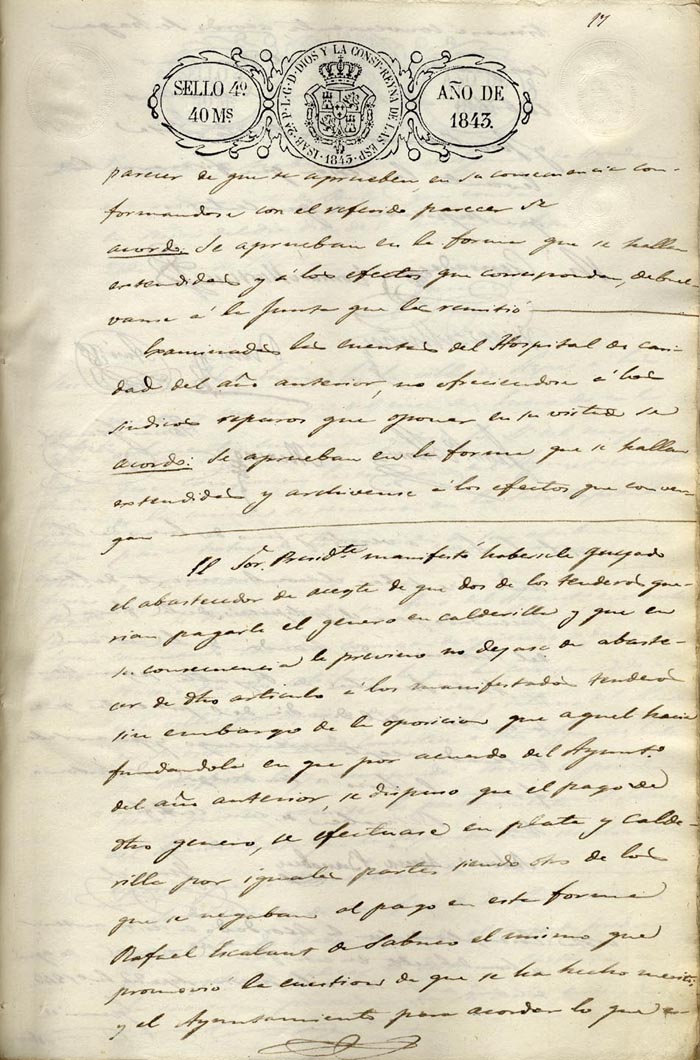 17
SELLO 4º.
40 Ms
ISAB. 2ª P. L. G. D. DIOS Y LA CONST. REYNA DE LAS ESP.
1843
AÑO DE
1843.
parecer de que se aprueben, en su consecuencia con-
formandose con el referido parecer se
acordó: Se aprueban en la forma que se hallan
estendidas y á los efectos que correspondan, debuel-
vanse á la Junta que las remitió
Examinadas las cuentas del Hospital de cari-
dad del año anterior, no ofreciendose á los
sindicos reparos que oponer en su vista se
acordó: Se aprueban en la forma que se hallan
estendidas y archivense á los efectos que conven-
gan
El Sor. Presidte. manifestó habersele quejado
el abastecedor de aceyte de que dos de los tenderos que-
rian pagarle el genero en calderilla y que en
su consecuencia le previno no dejase de abaste-
cer de dho articulo á los manifestados tenderos
sin embargo de la oposicion que aquel hacia
fundandola en que por acuerdo del Ayunto.
del año anterior, se dispuso que el pago de
dho genero, se efectuase en plata y calde-
rilla por iguales partes siendo otro de los
que se negaban al pago en esta forma
Rafael Escalant de Sabuco el mismo que
promovió la cuestion de que se ha hecho merito;
y el Ayuntamiento para acordar lo que